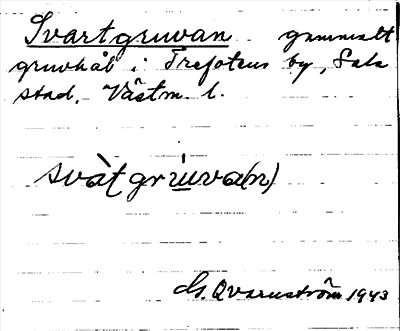 Svartgruvan gammalt
gruvhål i Trefotens by, Sala
stad, Västm. l.
svàtgru̲va(n)
G. Qvarnström 1943